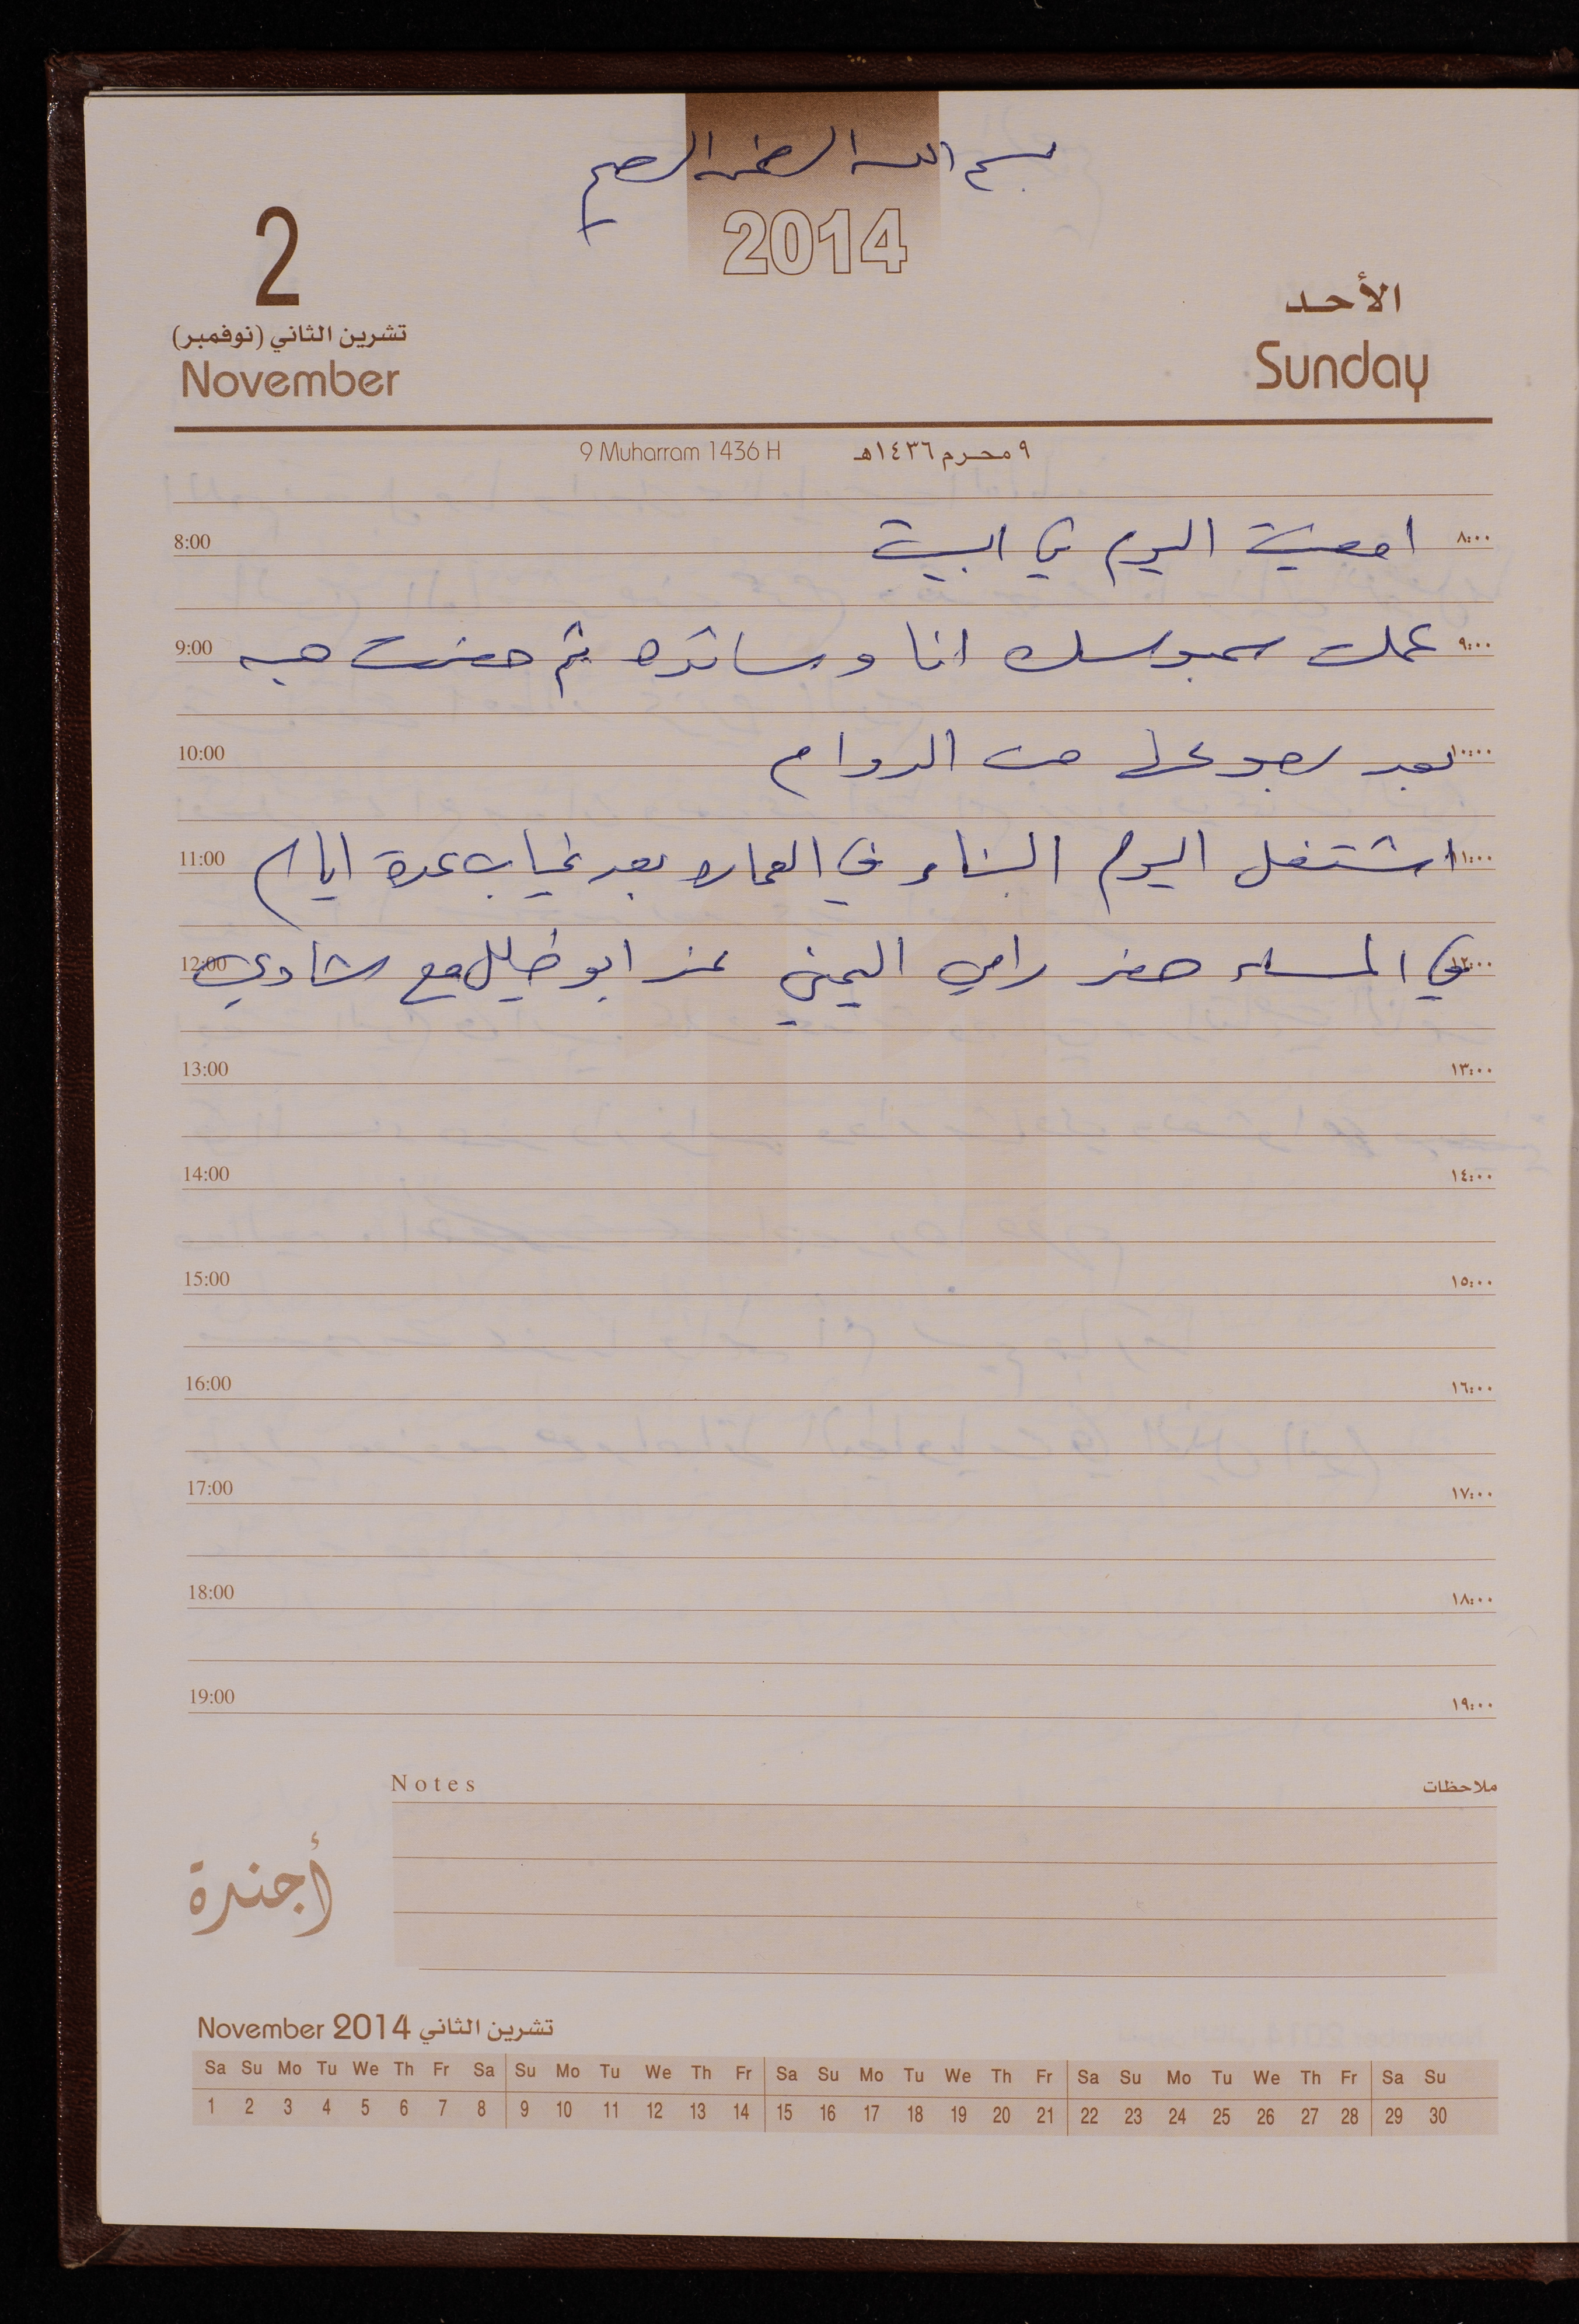 بسم الله الرحمن الرحيم
2014
2
تشرين الثاني (نوفمبر)
November
الأحد
Sunday
9 Muharram 1436 H ٩ محرم ١٤٣٦هـ
8:00 امضيت اليوم في البيت ٨:٠٠
9:00 عملت سمبوسك انا وساندره ثم حضرت هبه ٩:٠٠
10:00 بعد رجوعها من الدوام ١٠:٠٠
11:00 اشتغل اليوم البناء في العماره بعد غياب عدة ايام ١١:٠٠
12:00 في المساء حضر رامي اليمني عند ابو خليل مع شادي ١٢:٠٠
13:00 ١٣:٠٠
14:00 ١٤:٠٠
15:00 ١٥:٠٠
16:00 ١٦:٠٠
17:00 ١٧:٠٠
18:00 ١٨:٠٠
19:00 ١٩:٠٠
Notes ملاحظات
أجندة
November 2014 تشرين الثاني
Sa Su Mo Tu We Th Fr Sa Su Mo Tu We Th Fr Sa Su Mo Tu We Th Fr Sa Su Mo Tu We Th Fr Sa Su
1 2 3 4 5 6 7 8 9 10 11 12 13 14 15 16 17 18 19 20 21 22 23 24 25 26 27 28 29 30